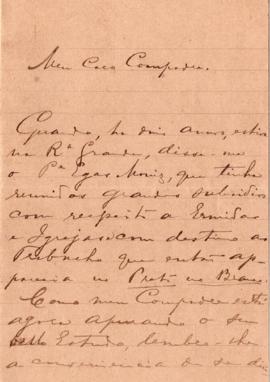 Meu Caro Compadre.
Quando, ha dois annos, estive
na Rª Grande, disse-me
o Pe Egas Moniz, que tinha
reunidos grandes subsidios
com respeito a Ermidas
e Igrejas com destino ao
trabalho que então ap-
parecia no Preto no Branco.
Como meu Compadre está
agora apurando o seu
bello Estudo, lembro-lhe
a conveniencia de se